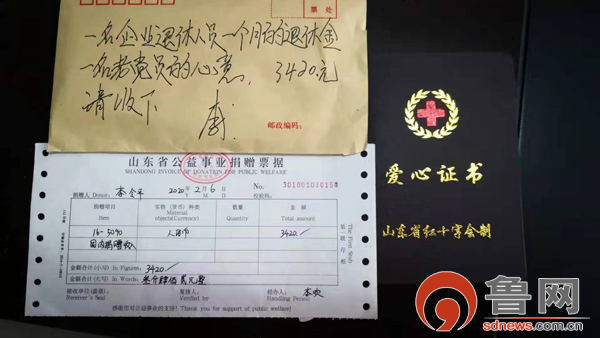 票处
一名企业退休人员一个月的退休金
一名老党员的心意, 3420元
请收下
李
邮政编码:
山东省公益事业捐赠票据
SHANDONG INVOICE OF DONATION FOR PUBLIC WELFARE
捐赠人 Donor: 李全平 2020年2月6日 No.
Y M D 校验码:
捐赠项目 实物(货币)种类 数量 金额
Item Material objects(Currency) Quantity Total amount
人民币 3420.-
国内捐赠收入
金额合计(小写) In Figures: 3420.-
金额合计(大写) In Words: 叁仟肆佰贰元整
接收单位(盖章): 复核人: 经办人:
Receiver's Seal Verified by Handling Person
感谢您对公益事业的支持! Thank you for support of public welfare!
爱心证书
山东省红十字会制
鲁网
sdnews.com.cn